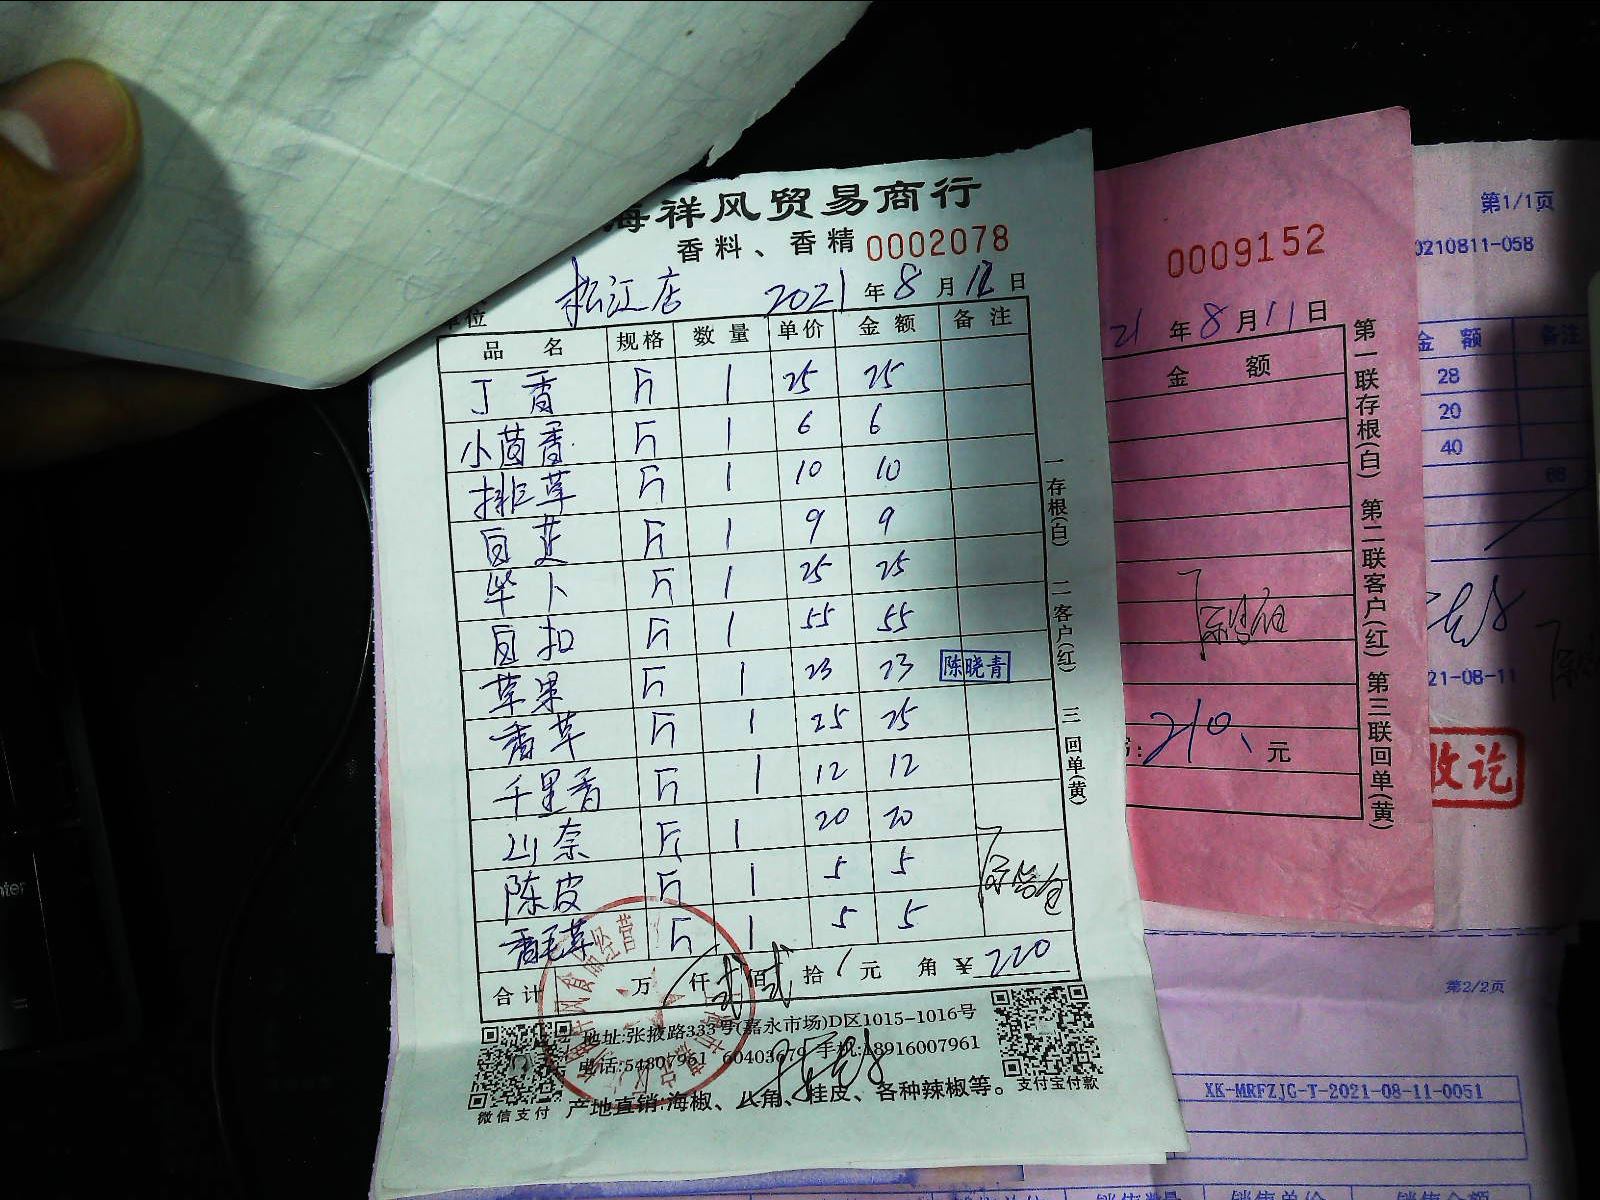 海祥风贸易商行
香料、香精 0002078
单位 松江店 2021 年 8 月 12 日
品 名 规格 数量 单价 金额 备注
丁香 斤 1 25 25
小茴香 斤 1 6 6
排草 斤 1 10 10
白芷 斤 1 9 9
毕卜 斤 1 25 25
白扣 斤 1 55 55
草果 斤 1 23 23 陈晓青
香草 斤 1 25 25
千里香 斤 1 12 12
山奈 斤 1 20 20
陈皮 斤 1 5 5
香毛草 斤 1 5 5
合计 万 仟 贰 佰 贰 拾 元 角 ¥ 220
地址:张掖路333号(嘉永市场)D区1015-1016号
电话:54807961 60403679 手机:18916007961
产地直销:海椒、八角、桂皮、各种辣椒等。
微信支付
支付宝付款
一存根(白) 二客户(红) 三回单(黄)
0009152
21 年 8 月 11 日
金 额
210 元
第一联存根(白) 第二联客户(红) 第三联回单(黄)
第1/1页
0210811-058
金 额 备注
28
20
40
88
21-08-11
收讫
第2/2页
XK-MRFZJG-T-2021-08-11-0051
销售数量 销售单价 销售金额